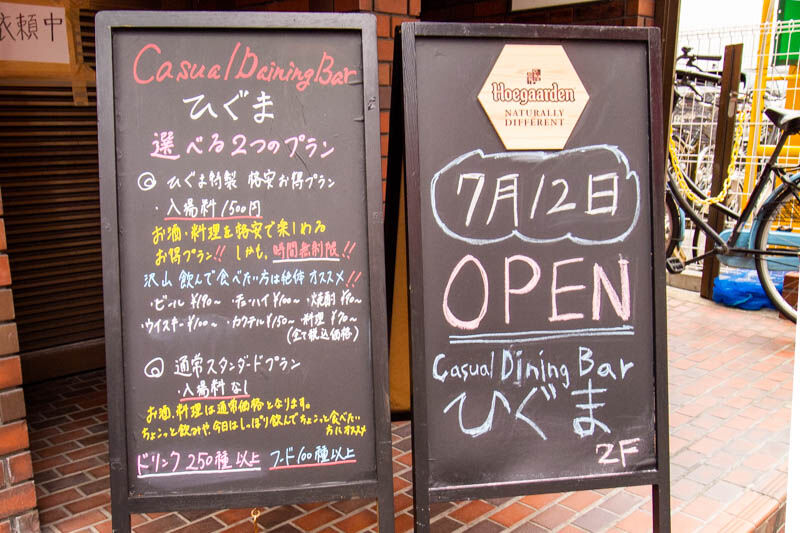 依頼中
Casual Daining Bar
ひぐま
選べる2つのプラン
◎ ひぐま特製 格安お得プラン
・入場料1500円
お酒・料理を格安で楽しめる
お得プラン!! しかも、時間無制限!!
沢山 飲んで食べたい方は絶体オススメ!!
・ビール ¥190~ ・チューハイ ¥100~ ・焼酎 ¥90~
・ウイスキー ¥100~ ・カクテル ¥150~ 料理 ¥70~
(全て税込価格)
◎ 通常スタンダードプラン
・入場料なし
お酒、料理は通常価格となります。
ちょこっと飲みや、今日はしっぽり飲んでちょこっと食べたい
方にオススメ
ドリンク250種以上 フード100種以上
Hoegaarden
NATURALLY
DIFFERENT
7月12日
OPEN
Casual Dining Bar
ひぐま
2F